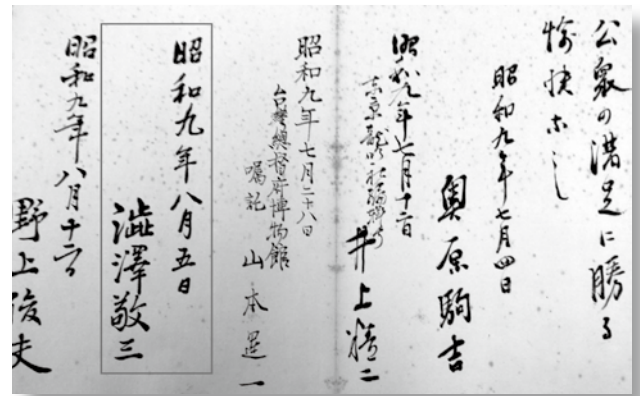 公衆の満足に勝る
愉快なし
昭和九年七月四日
奥原駒吉
昭和九年七月十二日
井上清二
昭和九年七月二十八日
台灣總督府博物館
嘱託
山本
一
昭和九年八月五日
澁澤敬三
昭和九年八月十六日
野上俊夫